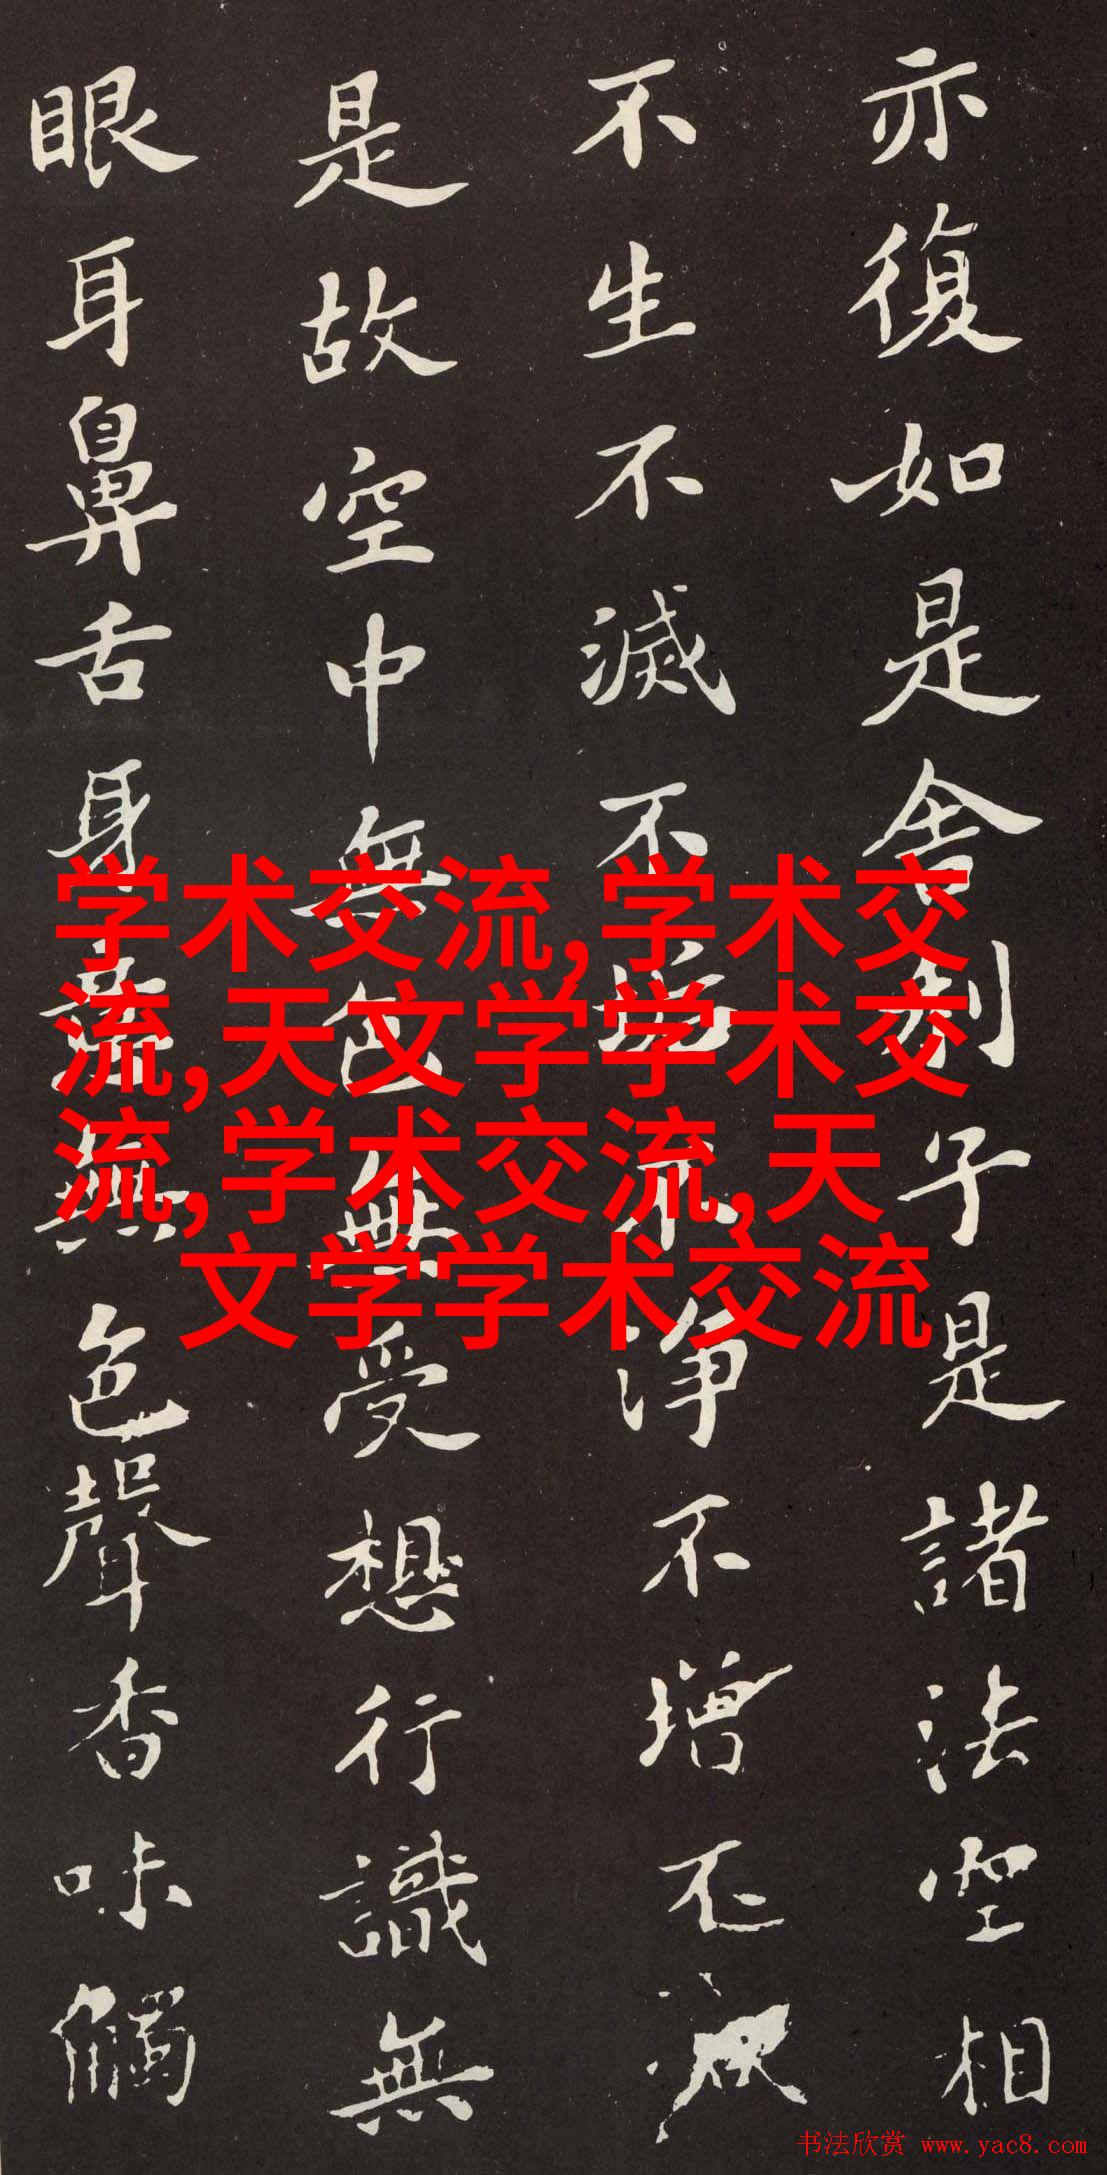 亦復如是舍利子是諸法空相
不生不滅不垢不淨不增不減
是故空中無色無受想行識無
眼耳鼻舌身意無色聲香味觸
学术交流,学术交
流,天文学学术交
流,学术交流,天
文学学术交流
书法欣赏 www.yac8.com